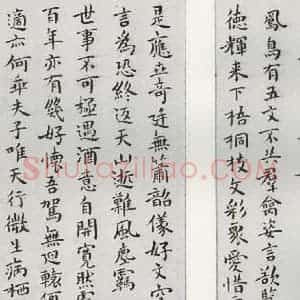 鳳鳥有五文不與群禽姿言欲
德輝来下梧桐枝文彩眾愛惜
是應立奇廷無簫韶儀好文空
言為恐終返天山逝難風塵羈
世事不可極遇酒意自開實
百年亦有幾好懷吾駕無迴轅何
適亦何乖夫子唯天行微生病栖
Shufaziliao.com